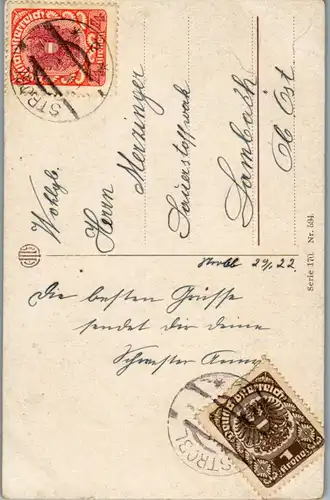 Deutschösterreich
STROBL
Wohlgb.
Herrn Merzinger
Sauerstoffwerk
Lambach
Ob Öst
Serie 170. Nr. 594
Strobl 29/1 22
Die besten Grüsse
sendet dir deine
Schwester Anny
STROBL
Deutschösterreich
1
Krone